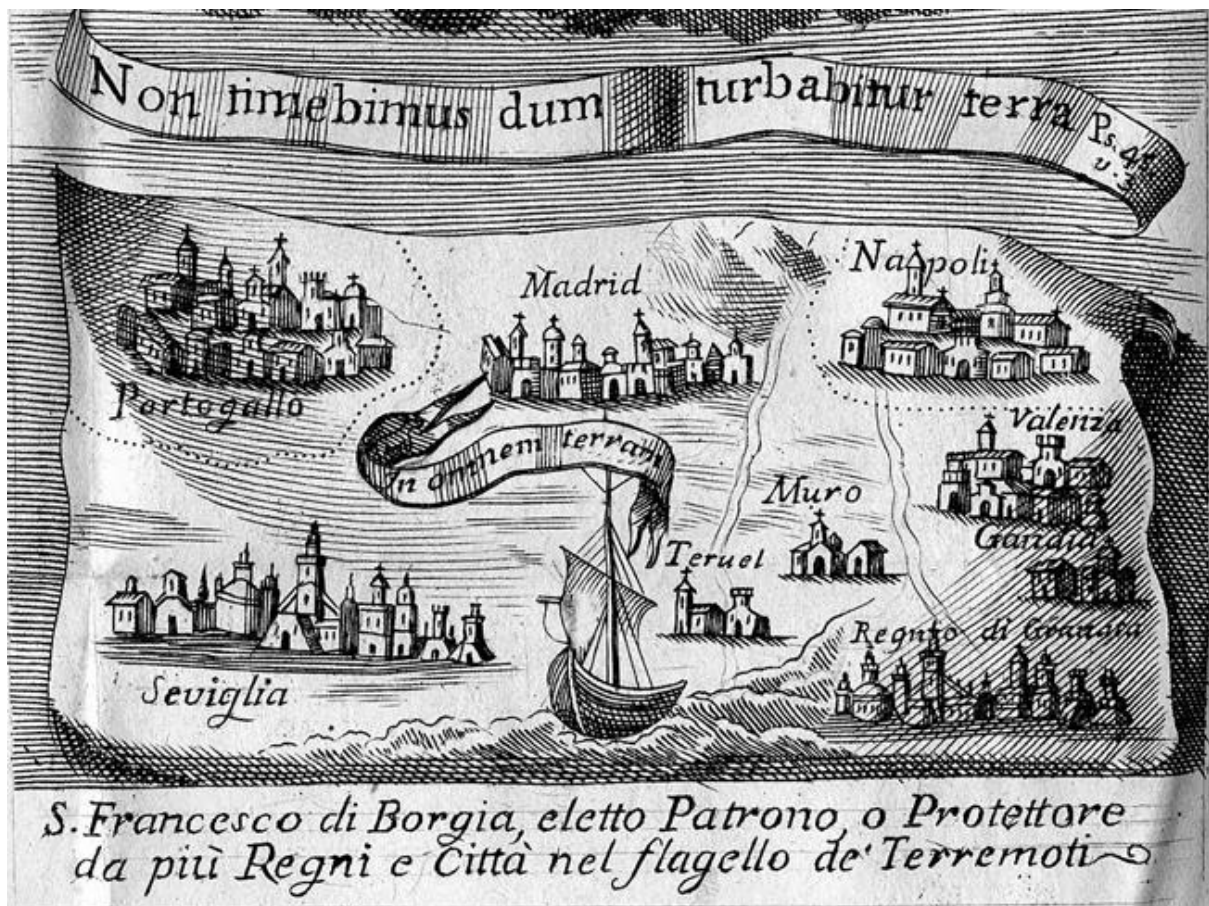 Non timebimus dum turbabitur terra Ps. 45
v. 3
Madrid
Napoli
Portogallo
Valenza
n omnem terram
Muro
Gandia
Teruel
Regnto di Granata
Seviglia
S. Francesco di Borgia, eletto Patrono, o Protettore
da più Regni e Città nel flagello de' Terremoti